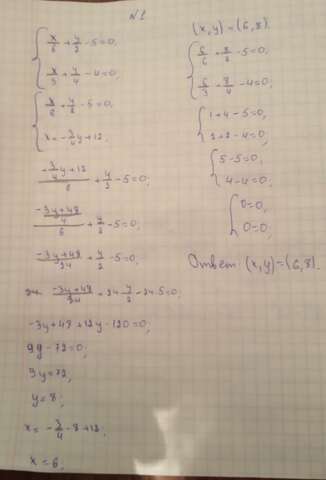 N1
x/6 + y/2 - 5 = 0,
x/3 + y/4 - 4 = 0;
x/6 + y/2 - 5 = 0,
x = -3/4 y + 12;
(-3/4 y + 12)/6 + y/2 - 5 = 0;
((-3y + 48)/4)/6 + y/2 - 5 = 0;
(-3y + 48)/24 + y/2 - 5 = 0;
24 · (-3y + 48)/24 + 24 · y/2 - 24 · 5 = 0;
-3y + 48 + 12y - 120 = 0;
9y - 72 = 0;
9y = 72;
y = 8;
x = -3/4 · 8 + 12;
x = 6;
(x, y) = (6, 8).
6/6 + 8/2 - 5 = 0,
6/3 + 8/4 - 4 = 0;
1 + 4 - 5 = 0,
2 + 2 - 4 = 0;
5 - 5 = 0,
4 - 4 = 0;
0 = 0,
0 = 0;
Ответ: (x, y) = (6, 8).